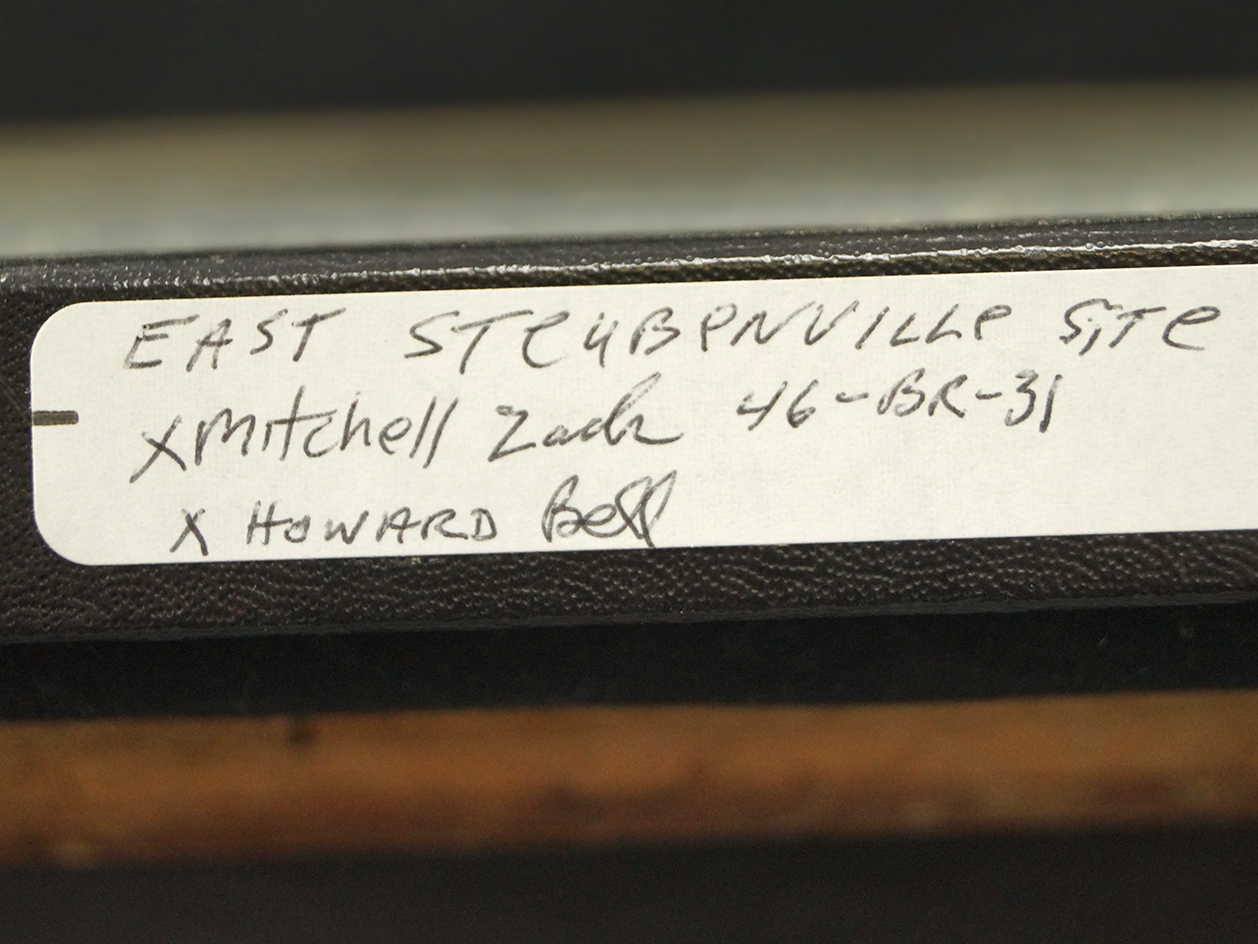 EAST STEUBENVILLE SITE
X Mitchell Zack 46-BR-31
X HOWARD Bell